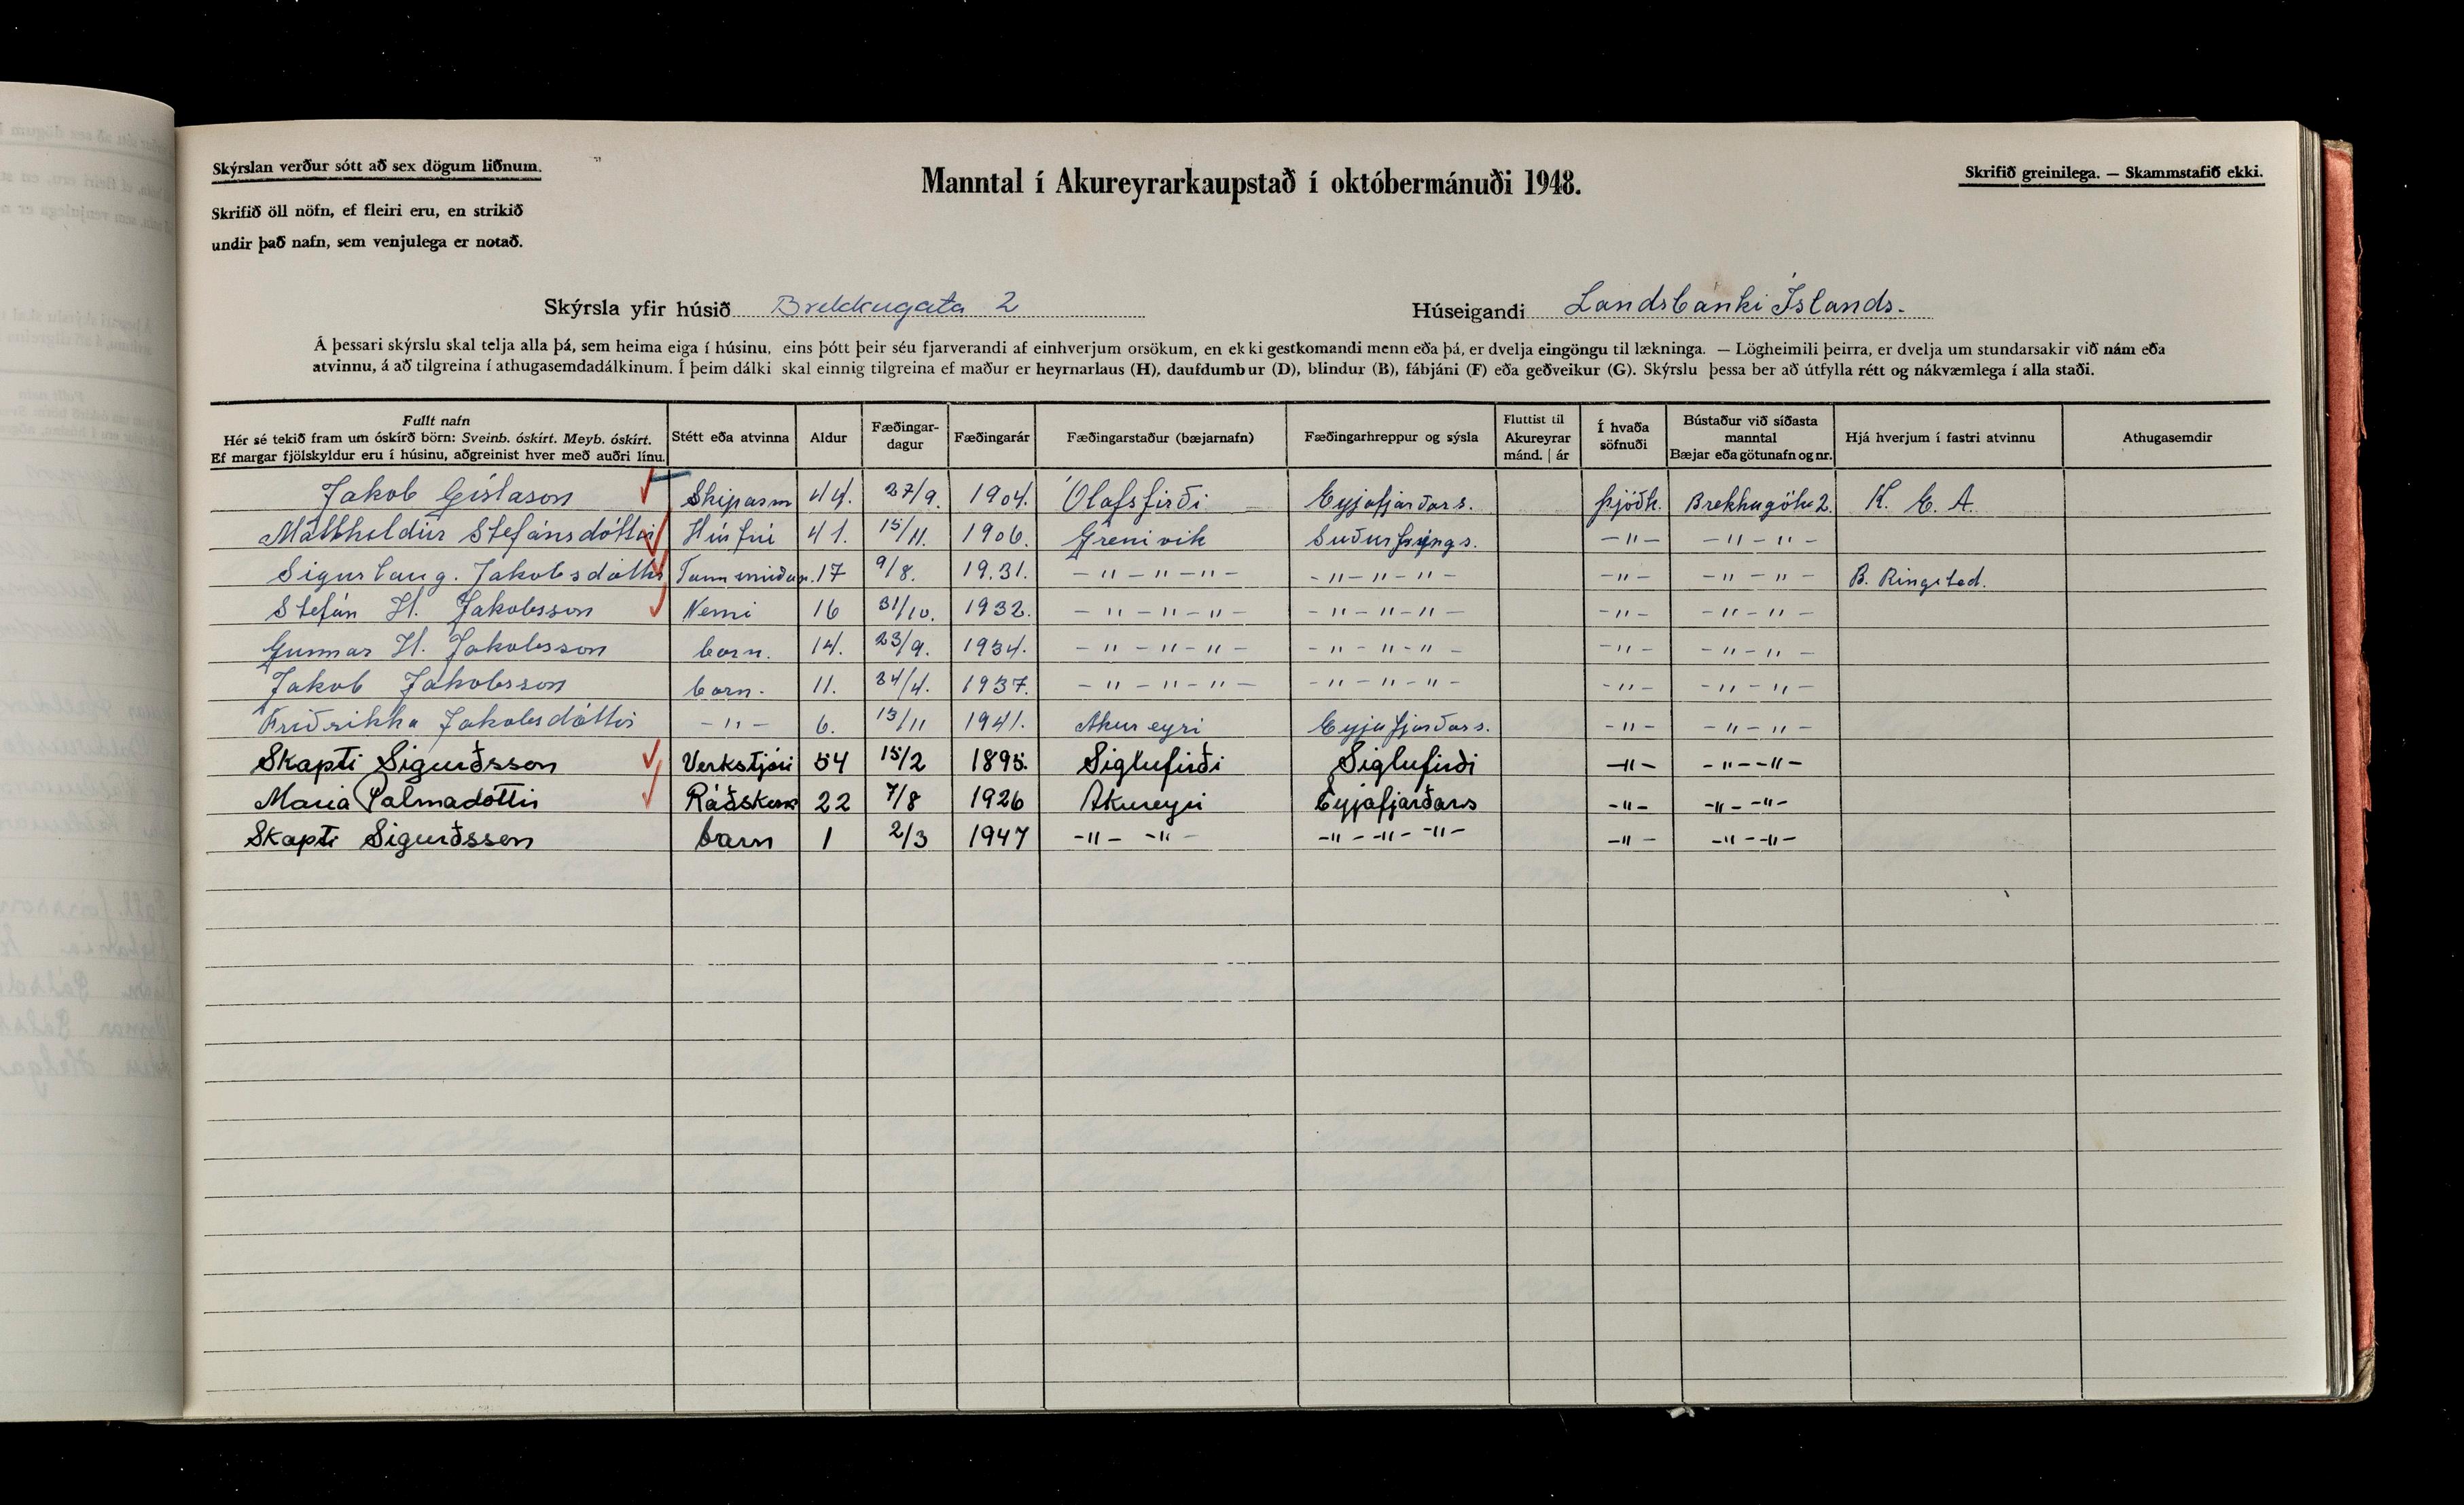 Skýrslan verður sótt að sex dögum liðnum.
Manntal í Akureyrarkaupstað í októbermánuði 1948.
Skrifið greinilega. — Skammstafið ekki.
Skrifið öll nöfn, ef fleiri eru, en strikið
undir það nafn, sem venjulega er notað.
Skýrsla yfir húsið Brekkugata 2 Húseigandi Landsbanki Íslands.
Á þessari skýrslu skal telja alla þá, sem heima eiga í húsinu, eins þótt þeir séu fjarverandi af einhverjum orsökum, en ekki gestkomandi menn eða þá, er dvelja eingöngu til lækninga. — Lögheimili þeirra, er dvelja um stundarsakir við nám eða
atvinnu, á að tilgreina í athugasemdadálkinum. Í þeim dálki skal einnig tilgreina ef maður er heyrnarlaus (H), daufdumbur (D), blindur (B), fábjáni (F) eða geðveikur (G). Skýrslu þessa ber að útfylla rétt og nákvæmlega í alla staði.
Fullt nafn
Hér sé tekið fram um óskírð börn: Sveinb. óskírt. Meyb. óskírt.
Ef margar fjölskyldur eru í húsinu, aðgreinist hver með auðri línu.
Stétt eða atvinna
Aldur
Fæðingar-
dagur
Fæðingarár
Fæðingarstaður (bæjarnafn)
Fæðingarhreppur og sýsla
Fluttist til
Akureyrar
mánd. | ár
Í hvaða
söfnuði
Bústaður við síðasta
manntal
Bæjar eða götunafn og nr.
Hjá hverjum í fastri atvinnu
Athugasemdir
Jakob Gíslason Skipasm 44. 27/9. 1904. Ólafsfirði Eyjafjarðars. þjóðk. Brekkugötu 2. K. E. A.
Matthildur Stefánsdóttir Húsfrú 41. 15/11. 1906. Grenivík Suðurþings. -"- -"-"-
Sigurlaug. Jakobsdóttir 17 9/8. 19.31. -"-"-"- -"-"-"- -"- -"-"- B. Ringsted.
Stefán H. Jakobsson Nemi 16 31/10. 1932. -"-"-"- -"-"-"- -"- -"-"-
Gunnar H. Jakobsson barn. 14. 23/9. 1934. -"-"-"- -"-"-"- -"- -"-"-
Jakob Jakobsson barn. 11. 24/4. 1937. -"-"-"- -"-"-"- -"- -"-"-
Friðrikka Jakobsdóttir -"- 6. 13/11 1941. Akureyri Eyjafjarðars. -"- -"-"-
Skapti Sigurðsson Verkstjóri 54 15/2 1895. Siglufirði Siglufirði -"- -"--"-
Maria Palmadóttir Ráðskona 22 7/8 1926 Akureyri Eyjafjarðars -"- -"--"-
Skapti Sigurðsson barn 1 2/3 1947 -"- -"- -"--"--"- -"- -"--"-